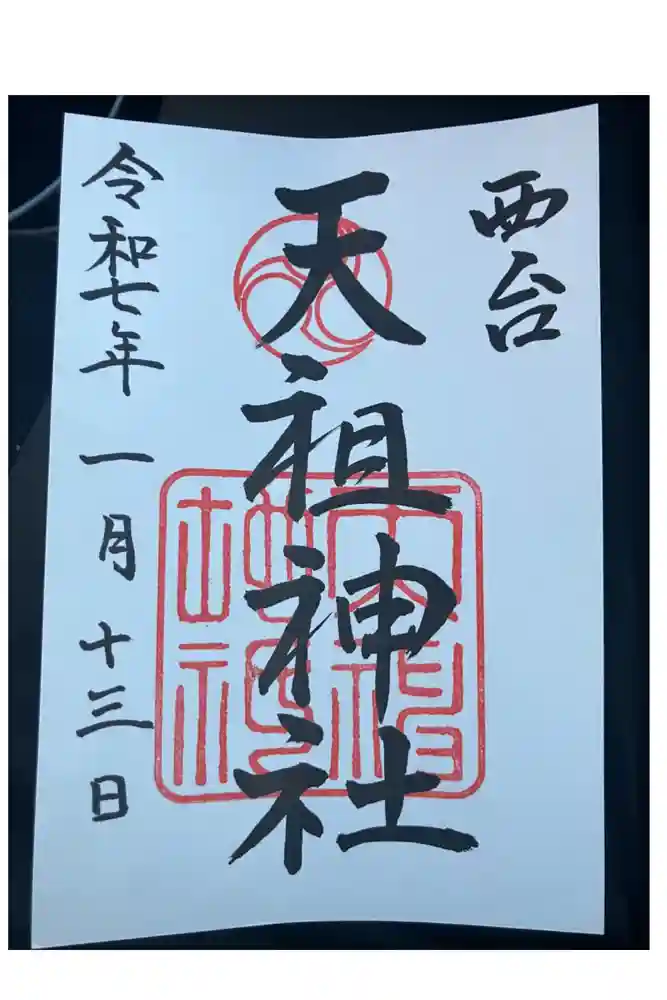 西台
天祖神社
令和七年一月十三日